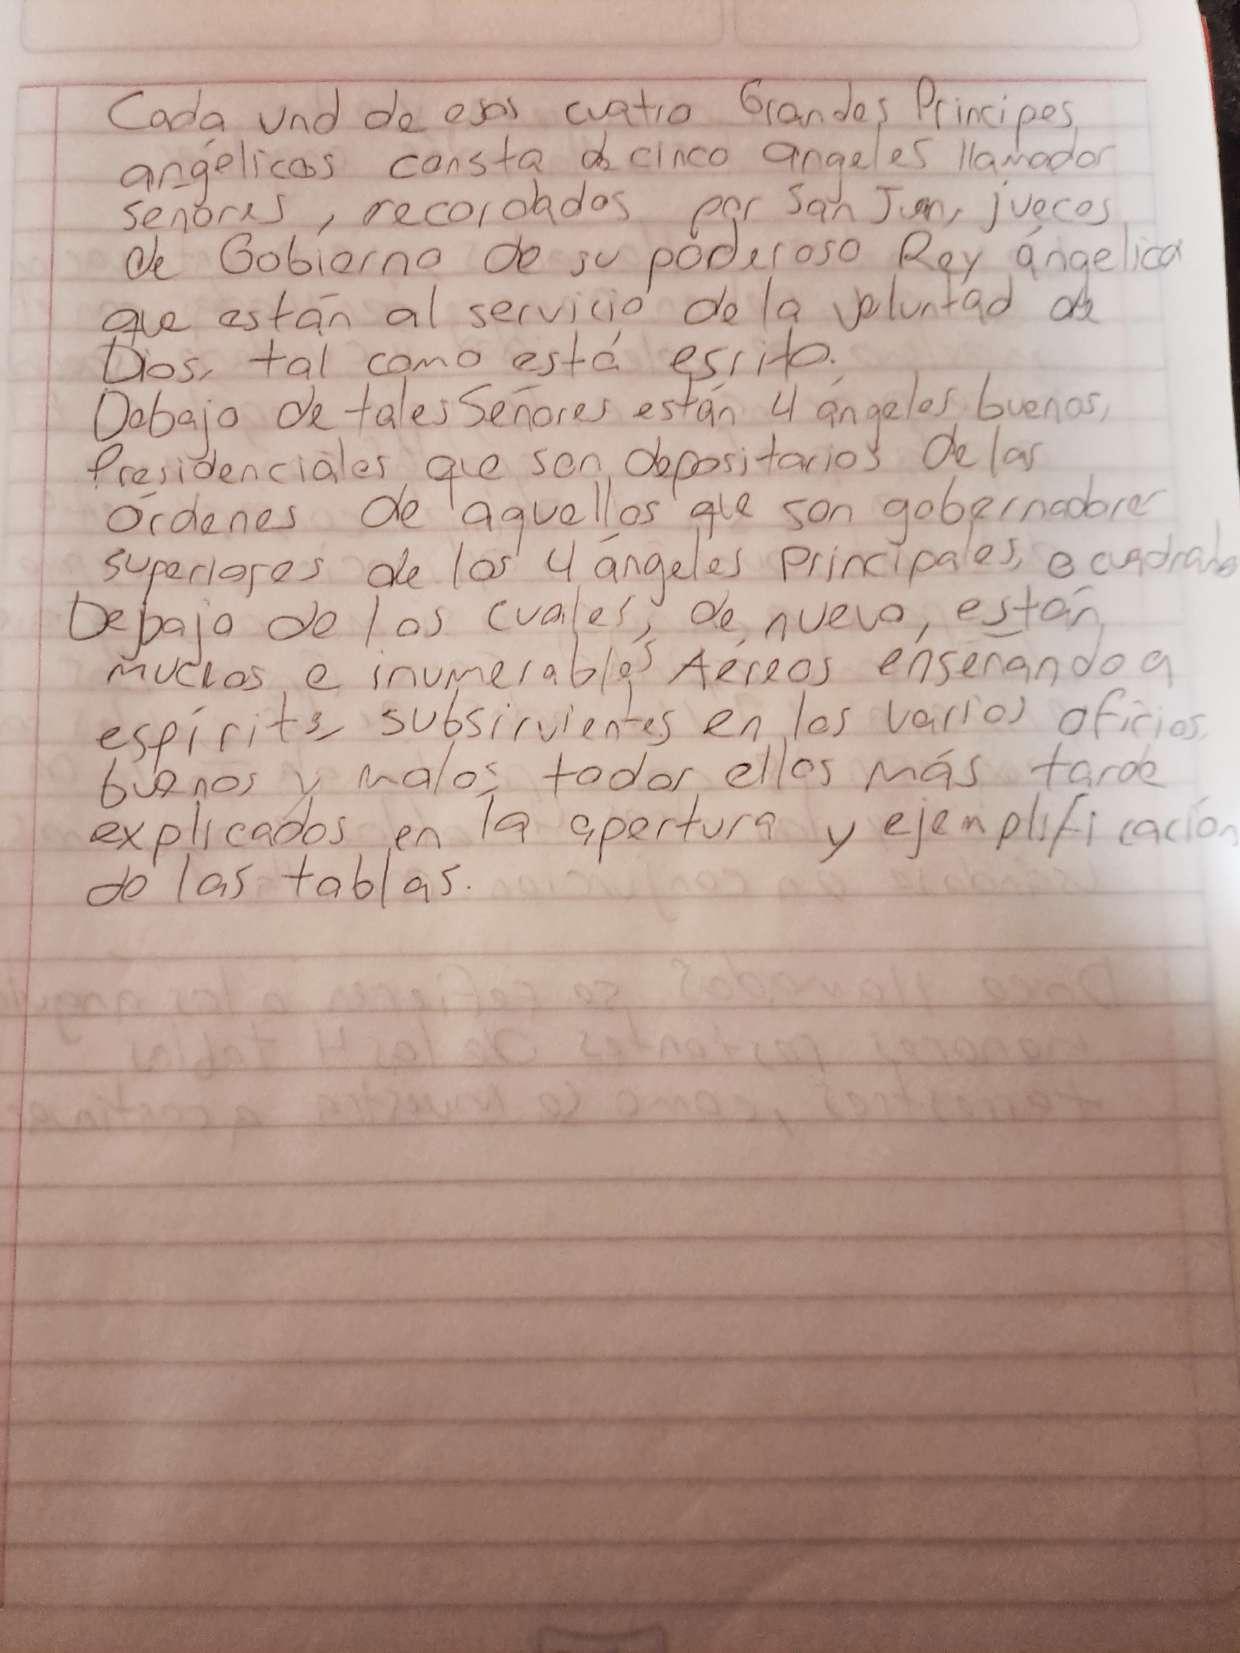 Cada uno de esos cuatro Grandes Príncipes
angélicos consta de cinco angeles llamados
señores, recordados por San Juan, jueces
de Gobierno de su poderoso Rey ángelica
que están al servicio de la voluntad de
Dios, tal como está esrito.
Debajo de tales Señores están 4 ángeles buenos,
Presidenciales que son depositarios de las
órdenes de aquellos que son gobernadores
superiores de los 4 ángeles principales, o cuadrans
Debajo de los cuales, de nuevo, están
muchos e inumerables Aéreos enseñando a
espíritus subsirvientes en los varios oficios,
buenos y malos; todos ellos más tarde
explicados en la apertura y ejemplificación
de las tablas.